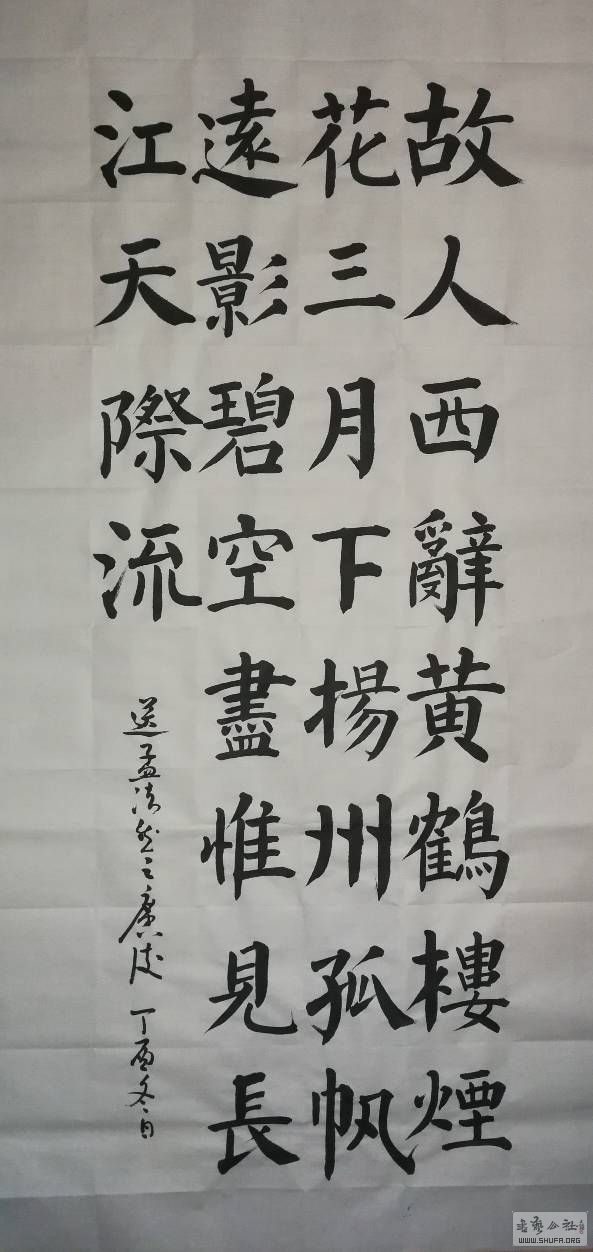 故人西辭黄鶴樓煙
花三月下揚州孤帆
遠影碧空盡惟見長
江天際流
送孟浩然之廣陵 丁酉冬日
书艺公社
WWW.SHUFA.ORG